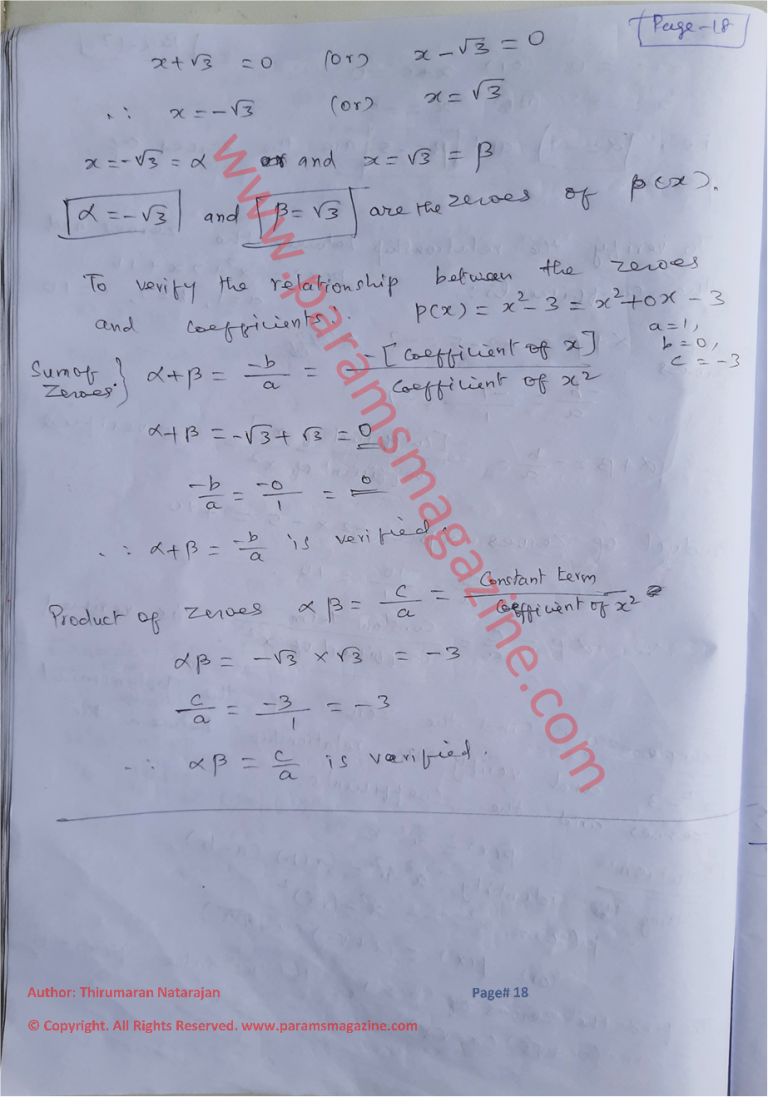 Page-18
x+√3 = 0 (or) x-√3 = 0
∴ x = -√3 (or) x = √3
x = -√3 = α and x = √3 = β
α = -√3 and β = √3 are the zeroes of p(x).
To verify the relationship between the zeroes
and coefficients: p(x) = x²-3 = x²+0x-3
a=1,
b=0,
c=-3
Sum of Zeroes } α+β = -b/a = -[coefficient of x]/coefficient of x²
α+β = -√3+√3 = 0
-b/a = -0/1 = 0
∴ α+β = -b/a is verified.
Product of zeroes αβ = c/a = Constant term/coefficient of x²
αβ = -√3 × √3 = -3
c/a = -3/1 = -3
∴ αβ = c/a is verified.
www.paramsmagazine.com
Author: Thirumaran Natarajan Page# 18
© Copyright. All Rights Reserved. www.paramsmagazine.com